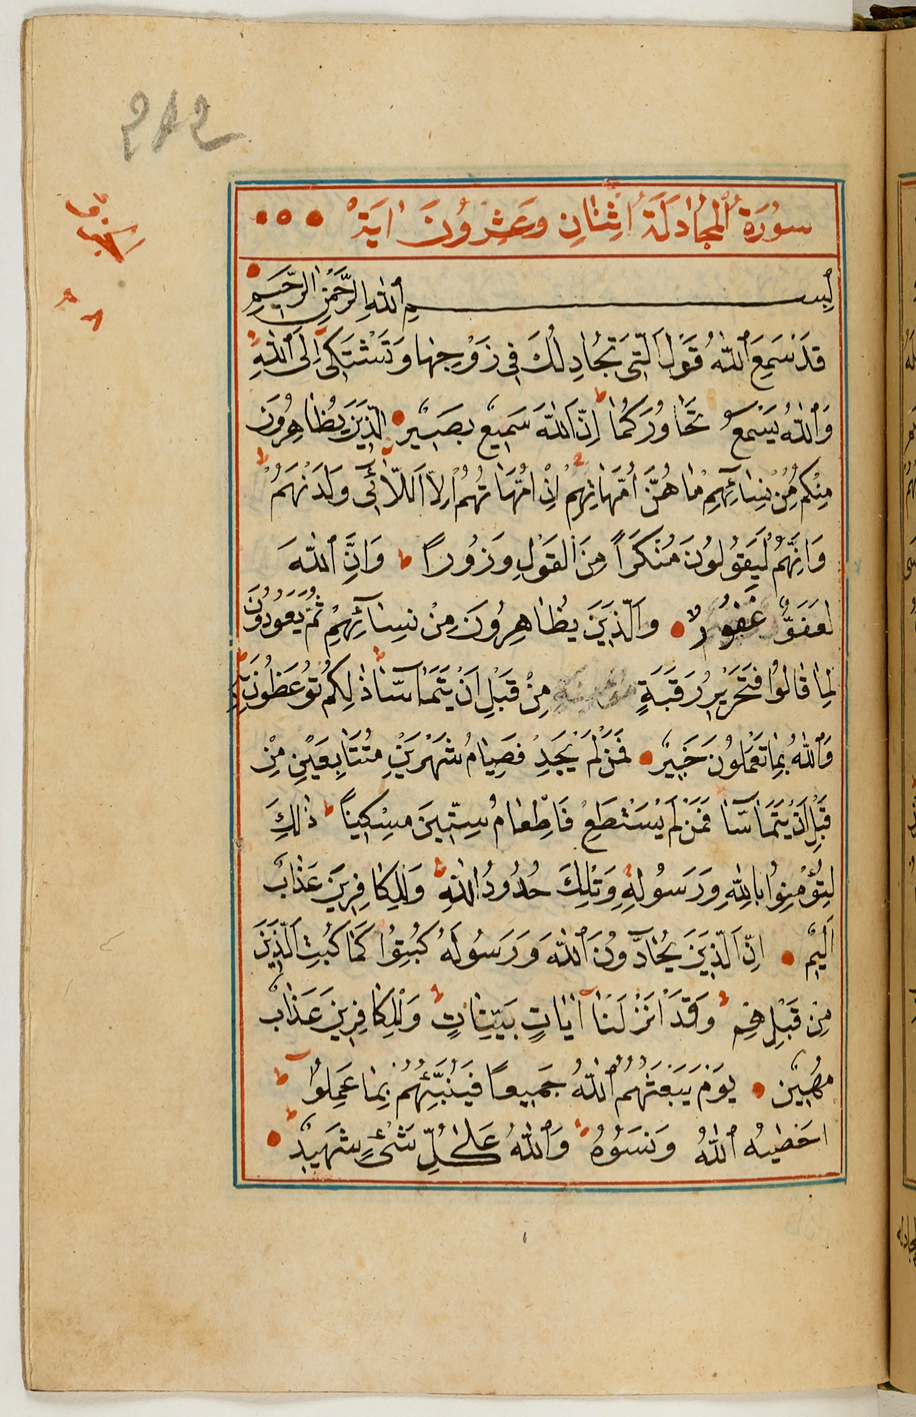 212
سُورَةُ الْمُجَادِلَةِ اثْنَانِ وَعِشْرُونَ اٰيَةً
بِسْمِ اللّٰهِ الرَّحْمٰنِ الرَّحِيمِ
قَدْ سَمِعَ اللّٰهُ قَوْلَ الَّتِى تُجَادِلُكَ فِى زَوْجِهَا وَتَشْتَكِى اِلَى اللّٰهِ
وَاللّٰهُ يَسْمَعُ تَحَاوُرَكُمَا اِنَّ اللّٰهَ سَمِيعٌ بَصِيرٌ اَلَّذِينَ يُظَاهِرُونَ
مِنْكُمْ مِنْ نِسَائِهِمْ مَا هُنَّ اُمَّهَاتِهِمْ اِنْ اُمَّهَاتُهُمْ اِلَّا اللَّائِى وَلَدْنَهُمْ
وَاِنَّهُمْ لَيَقُولُونَ مُنْكَرًا مِنَ الْقَوْلِ وَزُورًا ط وَاِنَّ اللّٰهَ
لَعَفُوٌّ غَفُورٌ وَالَّذِينَ يُظَاهِرُونَ مِنْ نِسَائِهِمْ ثُمَّ يَعُودُونَ
لِمَا قَالُوا فَتَحْرِيرُ رَقَبَةٍ مِنْ قَبْلِ اَنْ يَتَمَاسَّا ذٰلِكُمْ تُوعَظُونَ بِهِ
وَاللّٰهُ بِمَا تَعْمَلُونَ خَبِيرٌ فَمَنْ لَمْ يَجِدْ فَصِيَامُ شَهْرَيْنِ مُتَتَابِعَيْنِ مِنْ
قَبْلِ اَنْ يَتَمَاسَّا فَمَنْ لَمْ يَسْتَطِعْ فَاِطْعَامُ سِتِّينَ مِسْكِينًا ط ذٰلِكَ
لِتُؤْمِنُوا بِاللّٰهِ وَرَسُولِهِ وَتِلْكَ حُدُودُ اللّٰهِ ط وَلِلْكَافِرِينَ عَذَابٌ
اَلِيمٌ اِنَّ الَّذِينَ يُحَادُّونَ اللّٰهَ وَرَسُولَهُ كُبِتُوا كَمَا كُبِتَ الَّذِينَ
مِنْ قَبْلِهِمْ ط وَقَدْ اَنْزَلْنَا اٰيَاتٍ بَيِّنَاتٍ ط وَلِلْكَافِرِينَ عَذَابٌ
مُهِينٌ يَوْمَ يَبْعَثُهُمُ اللّٰهُ جَمِيعًا فَيُنَبِّئُهُمْ بِمَا عَمِلُوا ط
اَحْصٰيهُ اللّٰهُ وَنَسُوهُ ط وَاللّٰهُ عَلٰى كُلِّ شَىْءٍ شَهِيدٌ